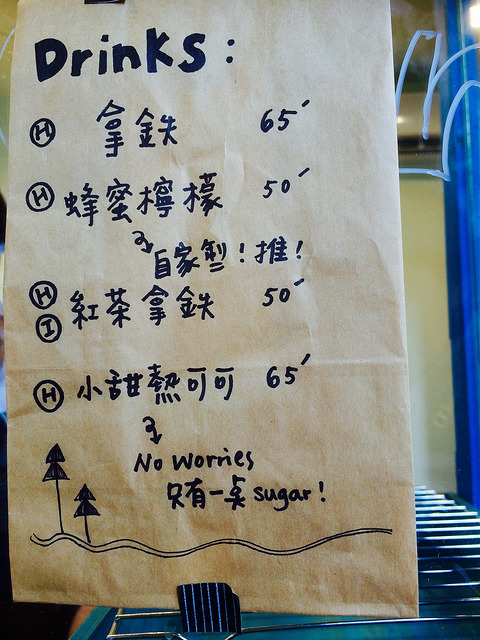 Drinks:
Ⓗ 拿鉄 65
Ⓗ 蜂蜜檸檬 50
自家製！推！
Ⓗ Ⓘ 紅茶拿鉄 50
Ⓗ 小甜熱可可 65
No worries
只有一桌 sugar!